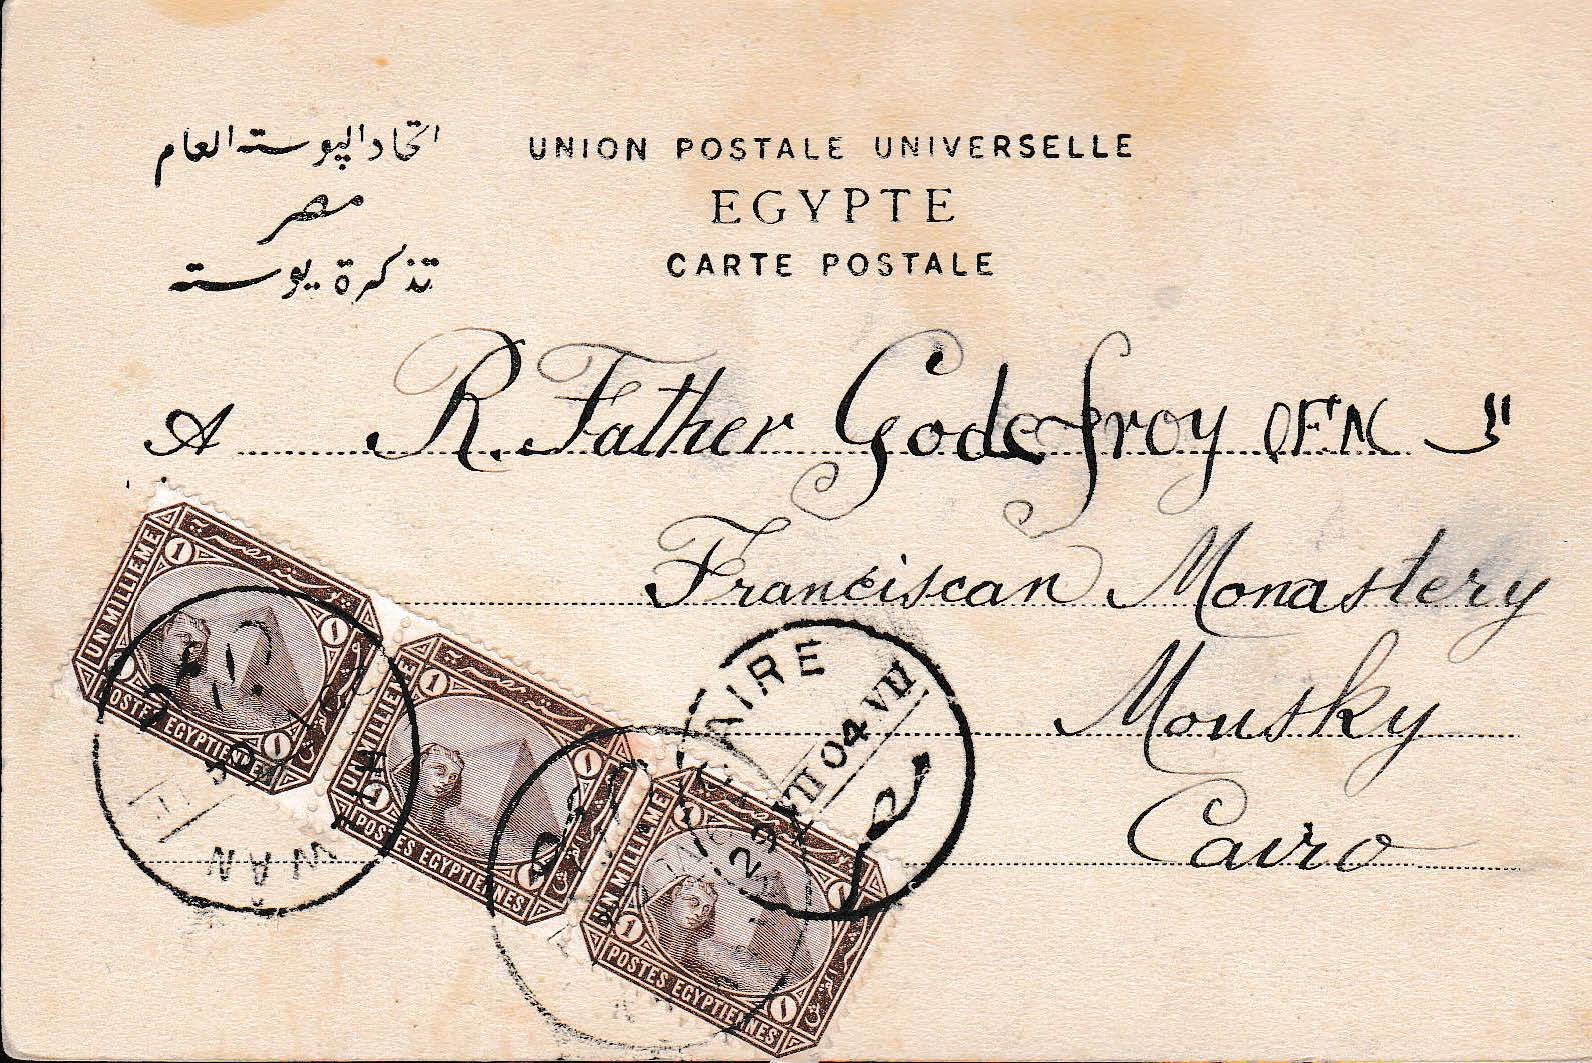 اتحاد البوسته العام
مصر
تذكرة بوسته
UNION POSTALE UNIVERSELLE
EGYPTE
CARTE POSTALE
A R. Father Godefroy OFM الى
Franciscan Monastery
Mousky
Cairo
UN MILLIEME
1 1 1
POSTES EGYPTIENNES
UN MILLIEME
1 1 1
POSTES EGYPTIENNES
UN MILLIEME
1 1 1
POSTES EGYPTIENNES
CAIRE
29 VII 04 VII